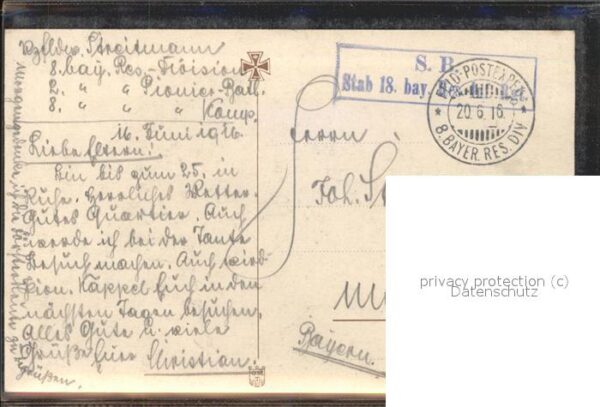 Vzfldw. Streitmann
8. bay. Res.-Division
2. " " Pionier-Batl.
8. " " Komp.
16. Juni 1916.
Liebe Eltern!
Bin bis zum 25. in
Ruhe. Herrliches Wetter.
Gutes Quartier. Auch
werde ich bei der Tante
Besuch machen. Auch wird
Pion. Kappel Euch in den
nächsten Tagen besuchen.
Alles Gute u. viele
Grüße Euer Christian.
grüßen.
S. B.
Stab 18. bay. Res.
FELD-POSTEXPED.
20.6.16.
* 8. BAYER. RES. DIV *
Herrn
Joh. St
M
Bayern.
privacy protection (c)
Datenschutz